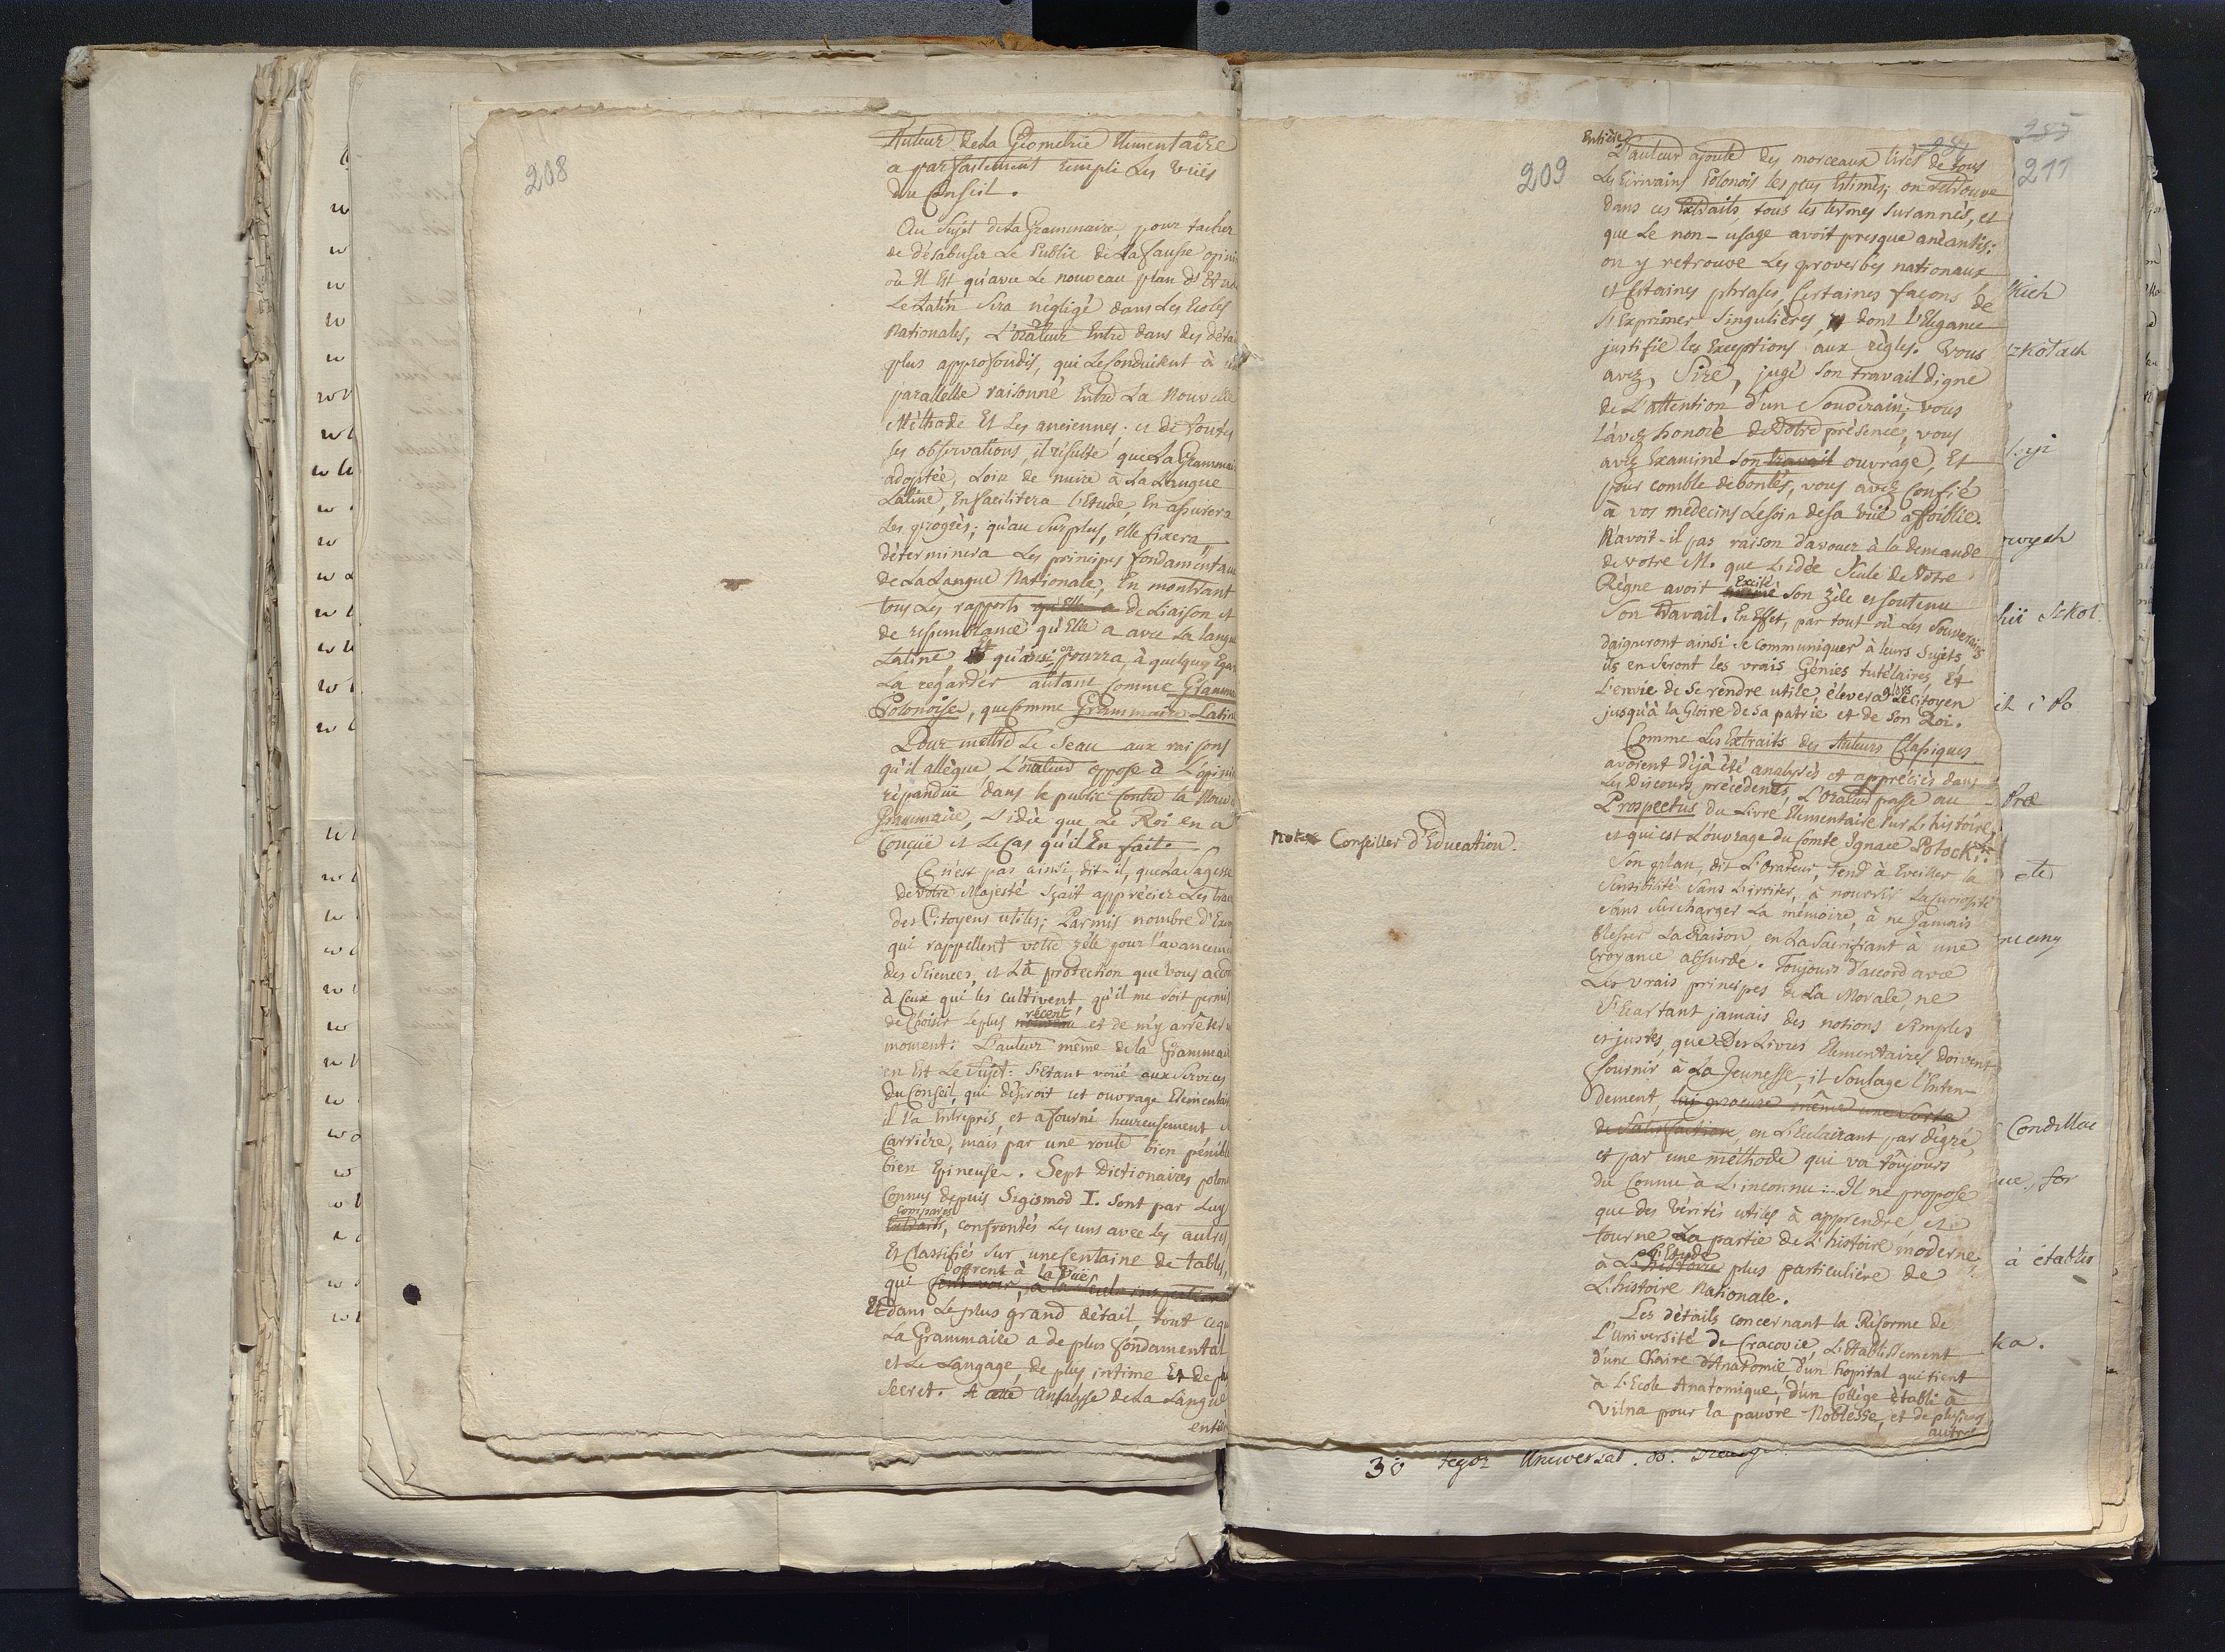 208
Auteur de la Géometrie Elementaire
a parfaitement rempli Les vuës
du Conseil.
Au Sujet de la Grammaire, pour tacher
de désabuser Le Public de La fausse opini
où Il Est qu'avec Le nouveau plan d'Etud
Le Latin Sera négligé dans Les Ecoles
Nationales, L'orateur Entre dans des détai
plus approfondis, qui Le Conduisent à un
parallelle raisonné Entre La Nouvelle
Méthode Et Les anciennes: et de toutes
ses observations, il résulte que La Grammai
adoptée, Loin de nuire à La Langue
Latine, En facilitera l'Etude, En assurera
Les progrès; qu'au Surplus, elle fixera,
déterminera Les principes fondamentau
de La Langue Nationale, En montrant
tous Les rapports qu'Elle a de Liaison et
de ressemblance qu'Elle a avec La langue
Latine Et qu'ainsi on pourra, à quelques Egar
La regarder autant Comme Gramma
Polonoise, que Comme Grammaire Latin
Pour mettre Le Seau aux raisons
qu'il allègue L'orateur oppose à L'opini
répanduë dans le public Contre la Nouve
Grammaire, L'idée que Le Roi en a
Conçuë et Le Cas qu'il En fait.
Ce n'est pas ainsi, dit-il, que La Sagesse
de Votre Majesté Sçait apprécier Les trav
des Citoyens utiles; Parmis nombre d'Exem
qui rappellent votre zèle pour l'avanceme
des Sciences, et La protection que vous accor
à Ceux qui les cultivent, qu'il me soit permis
de Choisir Le plus récent et de m'y arrêter u
moment: L'auteur même de la Grammair
en Est Le Sujet: S'Etant voüé aux Services
du Conseil, qui désiroit cet ouvrage Elementair
il l'a Entrepris, et a fourni heureusement
Carrière, mais par une route bien pénible
bien Epineuse. Sept Dictionaires polon
Connus depuis Sigismod I. Sont par Luy
comparés
Extraits, confrontés Les uns avec Les autres
Et Classifiés Sur une Centaine de tables,
offrent à la Vüe
qui font voir, à la seule inspection
Et dans Le plus grand détail, tout ce qu
La Grammaire a de plus fondamental
et Le Langage, de plus intime Et de pl
Secret. A cette Analyse de La Langue
entiè
209
211
Entière
L'auteur ajoute des morceaux tirés de tous
Les Ecrivains Polonois les plus Estimés; on retrouve
dans ces Extraits tous les termes Surannés, et
que Le non-usage avoit presque anéantis:
on y retrouve Les proverbes nationaux
et Certaines phrases, Certaines façons de
S'Exprimer Singulières, dont L'Elegance
justifie les Exceptions aux règles. Vous
avez, Sire, jugé Son travail digne
de L'attention d'un Souverain; vous
l'avez honoré de Votre présence, vous
avez Examiné Son travail ouvrage, Et
pour comble de bontés, vous avez Confié
à vos médecins Le soin de sa vuë affoiblie.
N'avoit-il pas raison d'avouer à la demande
de votre M. que L'idée Seule de Votre
Règne avoit Excité Son zèle et soutenu
Son travail. En Effet, par tout où Les Souverains
daigneront ainsi Se Communiquer à leurs Sujets
ils en Seront les vrais Génies tutélaires, Et
L'envie de Se rendre utile élevera alors Le Citoyen
jusqu'à la Gloire de Sa patrie et de Son Roi.
Comme Les Extraits des Auteurs Classiques
avoient déjà été analysés et appréciés dans
Les Discours précédents, L'Orateur passe au
Prospectus du Livre Elementaire Sur L'histoire,
et qui est L'ouvrage du Comte Ignace Potocki.
Note Conseiller d'Education.
Son plan, dit L'Orateur, tend à Eveiller la
Sensibilité Sans L'irriter, à nourrir La curiosité
Sans Surcharger La mémoire, à ne Jamais
blesser La Raison, en La Sacrifiant à une
Croyance absurde. Toujours d'accord avec
Les vrais principes de La Morale, ne
S'Ecartant jamais des notions Simples
et justes, que Des Livres Elementaires doivent
fournir à La Jeunesse, il Soulage l'Enten-
dement, lui procure même une Sorte
de Satisfaction, en L'Eclairant par dégré,
et par une méthode qui va toûjours
du Connu à L'inconnu: Il ne propose
que des Vérités utiles à apprendre, et
tourne La partie de L'histoire moderne,
L'Etude
à L'histoire plus particulière de
L'histoire Nationale.
Les détails concernant la Réforme de
L'Université de Cracovie, L'Etablissement
d'une Chaire d'Anatomie, d'un hôpital qui tient
à L'Ecole Anatomique, d'un Collège établi à
Vilna pour la pauvre Noblesse, et de plusieurs
autres
Condillac
à établis